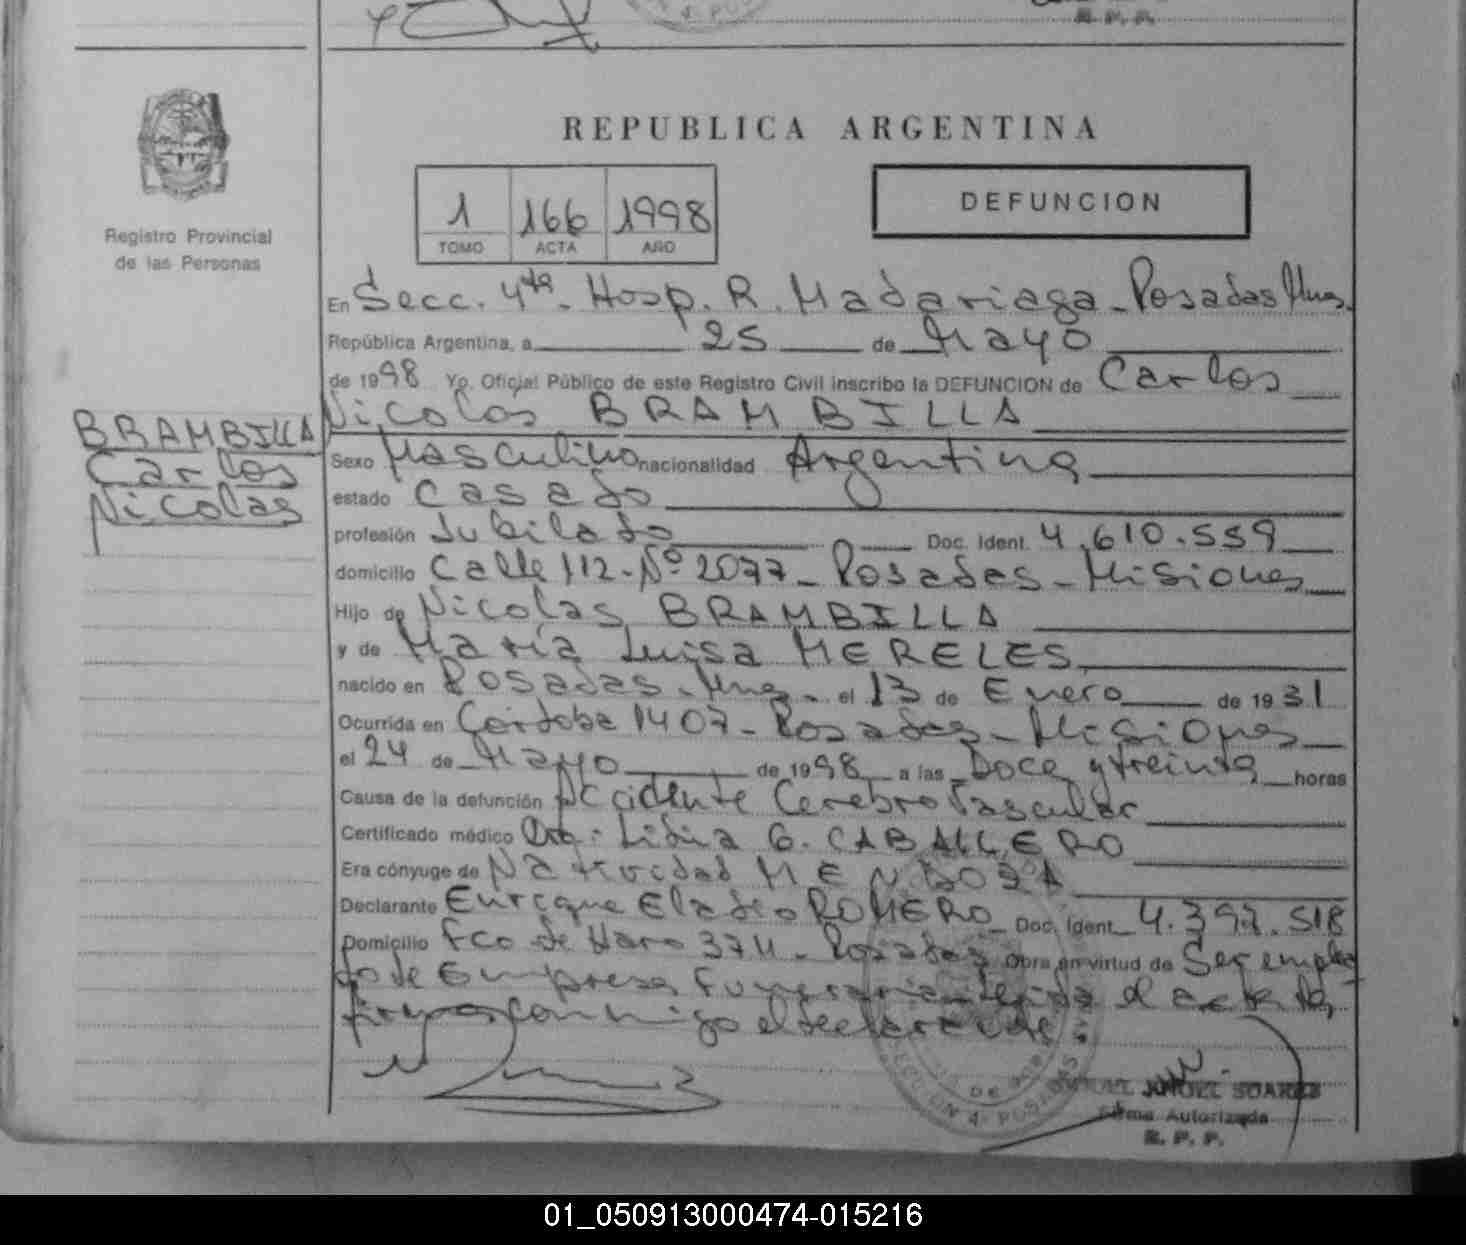 R. P. P.
REPUBLICA ARGENTINA
1 166 1998
TOMO ACTA AÑO
DEFUNCION
Registro Provincial
de las Personas
En Secc. 4ta. Hosp. R. Madariaga - Posadas Mnes.
República Argentina, a 25 de Mayo
de 1998 Yo, Oficial Público de este Registro Civil inscribo la DEFUNCION de Carlos
Nicolás BRAMBILLA
BRAMBILLA
Carlos
Nicolas
Sexo Masculino nacionalidad Argentina
estado Casado
profesión Jubilado Doc. Ident. 4.610.559
domicilio Calle 112 - Nº 2077 - Posadas - Misiones
Hijo de Nicolas BRAMBILLA
y de María Luisa MERELES
nacido en Posadas - Mnes - el 13 de Enero de 1931
Ocurrida en Córdoba 1407 - Posadas - Misiones
el 24 de Mayo de 1998 a las Doce y treinta horas
Causa de la defunción Accidente Cerebro Vascular
Certificado médico Dra. Lidia G. CABALLERO
Era cónyuge de Natividad MENDOZA
Declarante Enrique Eladio ROMERO Doc. Ident. 4.397.518
Domicilio Fco de Haro 3711 - Posadas Obra en virtud de Ser emplea
do de Empresa Funeraria - Leida el acta la,
firma conmigo el declarante
SECCION 4ª POSADAS
ANGEL SUAREZ
Firma Autorizada
R. P. P.
01_050913000474-015216